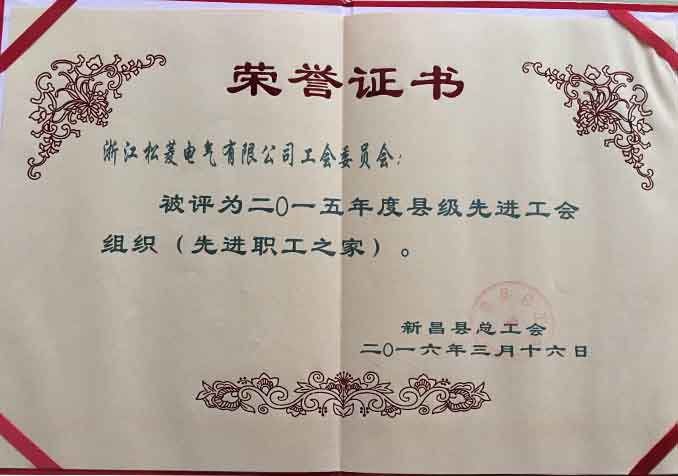 荣誉证书
浙江松菱电气有限公司工会委员会：
被评为二〇一五年度县级先进工会
组织（先进职工之家）。
新昌县总工会
二〇一六年三月十六日